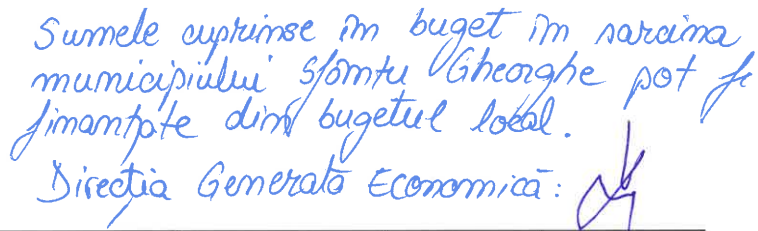 Sumele cuprinse în buget în sarcina
municipiului Sfântu Gheorghe pot fi
finanțate din bugetul local.
Direcția Generală Economică: